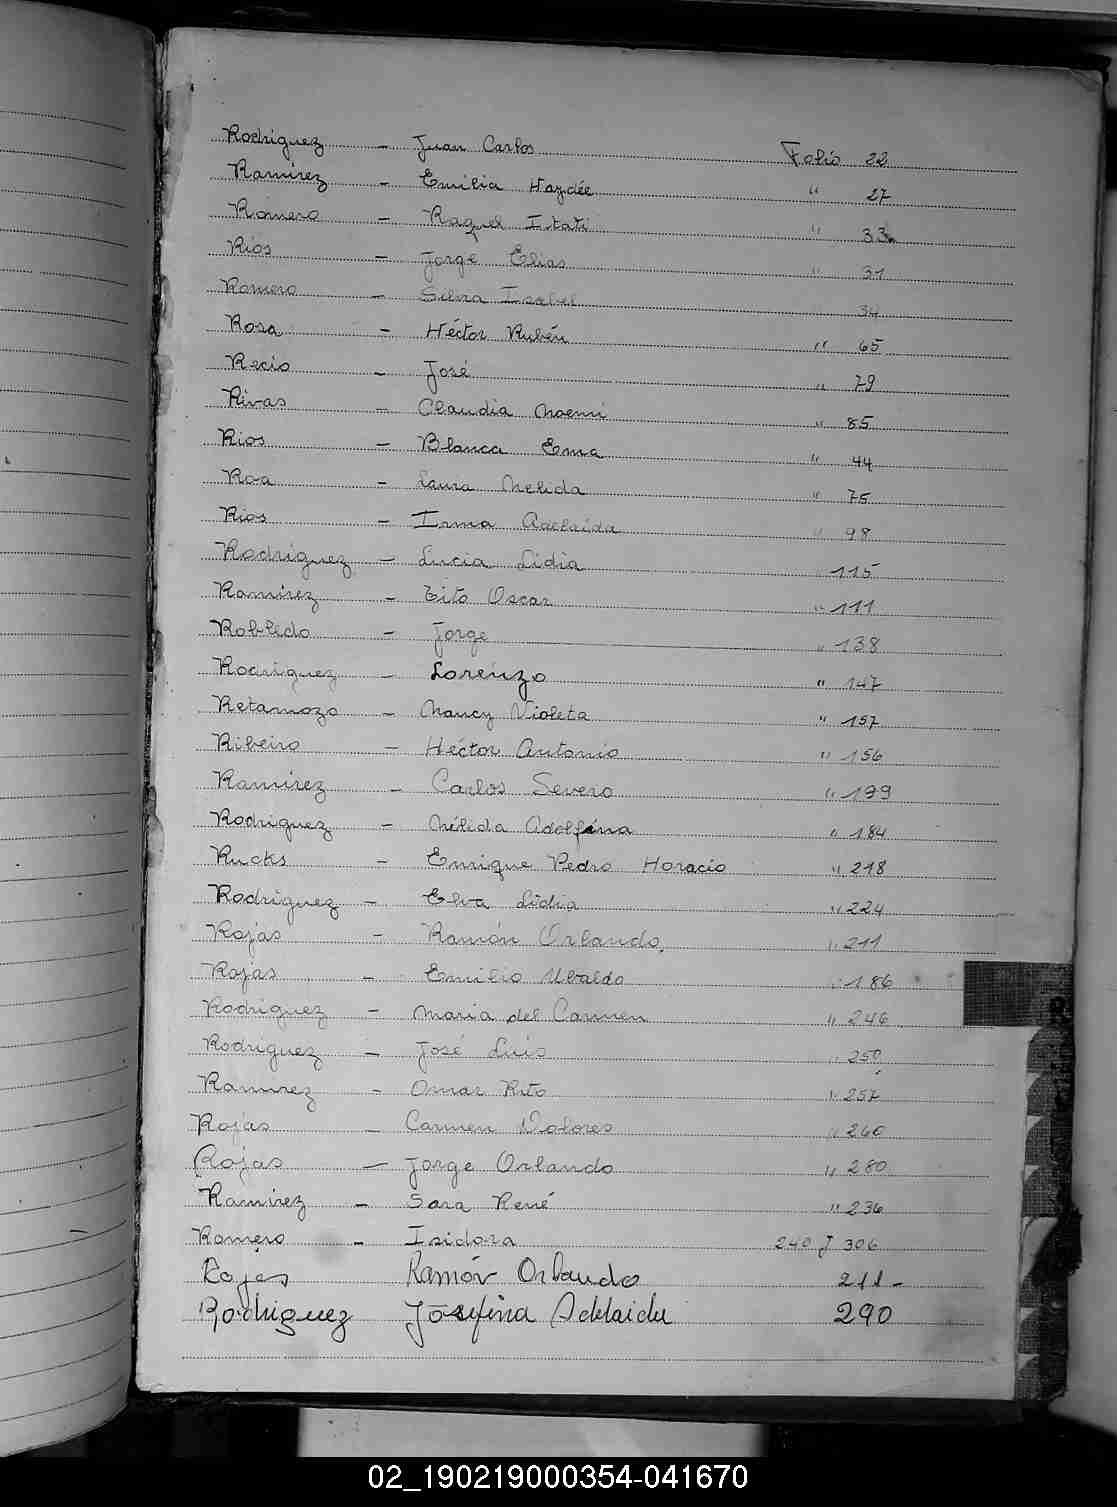 Rodriguez - Juan Carlos Folio 22
Ramirez - Emilia Haydée " 27
Romero - Raquel Itati " 33
Rios - Jorge Elias " 31
Romero - Silvia Isabel 34
Rosa - Héctor Rubén " 65
Recio - José " 79
Rivas - Claudia Noemi " 85
Rios - Blanca Ema " 44
Roa - Laura Nelida " 75
Rios - Irma Adelaida " 98
Rodriguez - Lucia Lidia " 115
Ramirez - Tito Oscar " 111
Robledo - Jorge " 138
Rodriguez - Lorenzo " 147
Retamozo - Nancy Violeta " 157
Ribeiro - Héctor Antonio " 156
Ramirez - Carlos Severo " 199
Rodriguez - Nélida Adolfina " 184
Rucks - Enrique Pedro Horacio " 218
Rodriguez - Elva Lidia " 224
Rojas - Ramón Orlando " 211
Rojas - Emilio Ubaldo " 186
Rodriguez - Maria del Carmen " 246
Rodriguez - José Luis " 250
Ramirez - Omar Rito " 257
Rojas - Carmen Dolores " 260
Rojas - Jorge Orlando " 280
Ramirez - Sara René " 236
Romero - Isidora 240 y 306
Rojas Ramón Orlando 211-
Rodriguez Josefina Adelaida 290
R
02_190219000354-041670